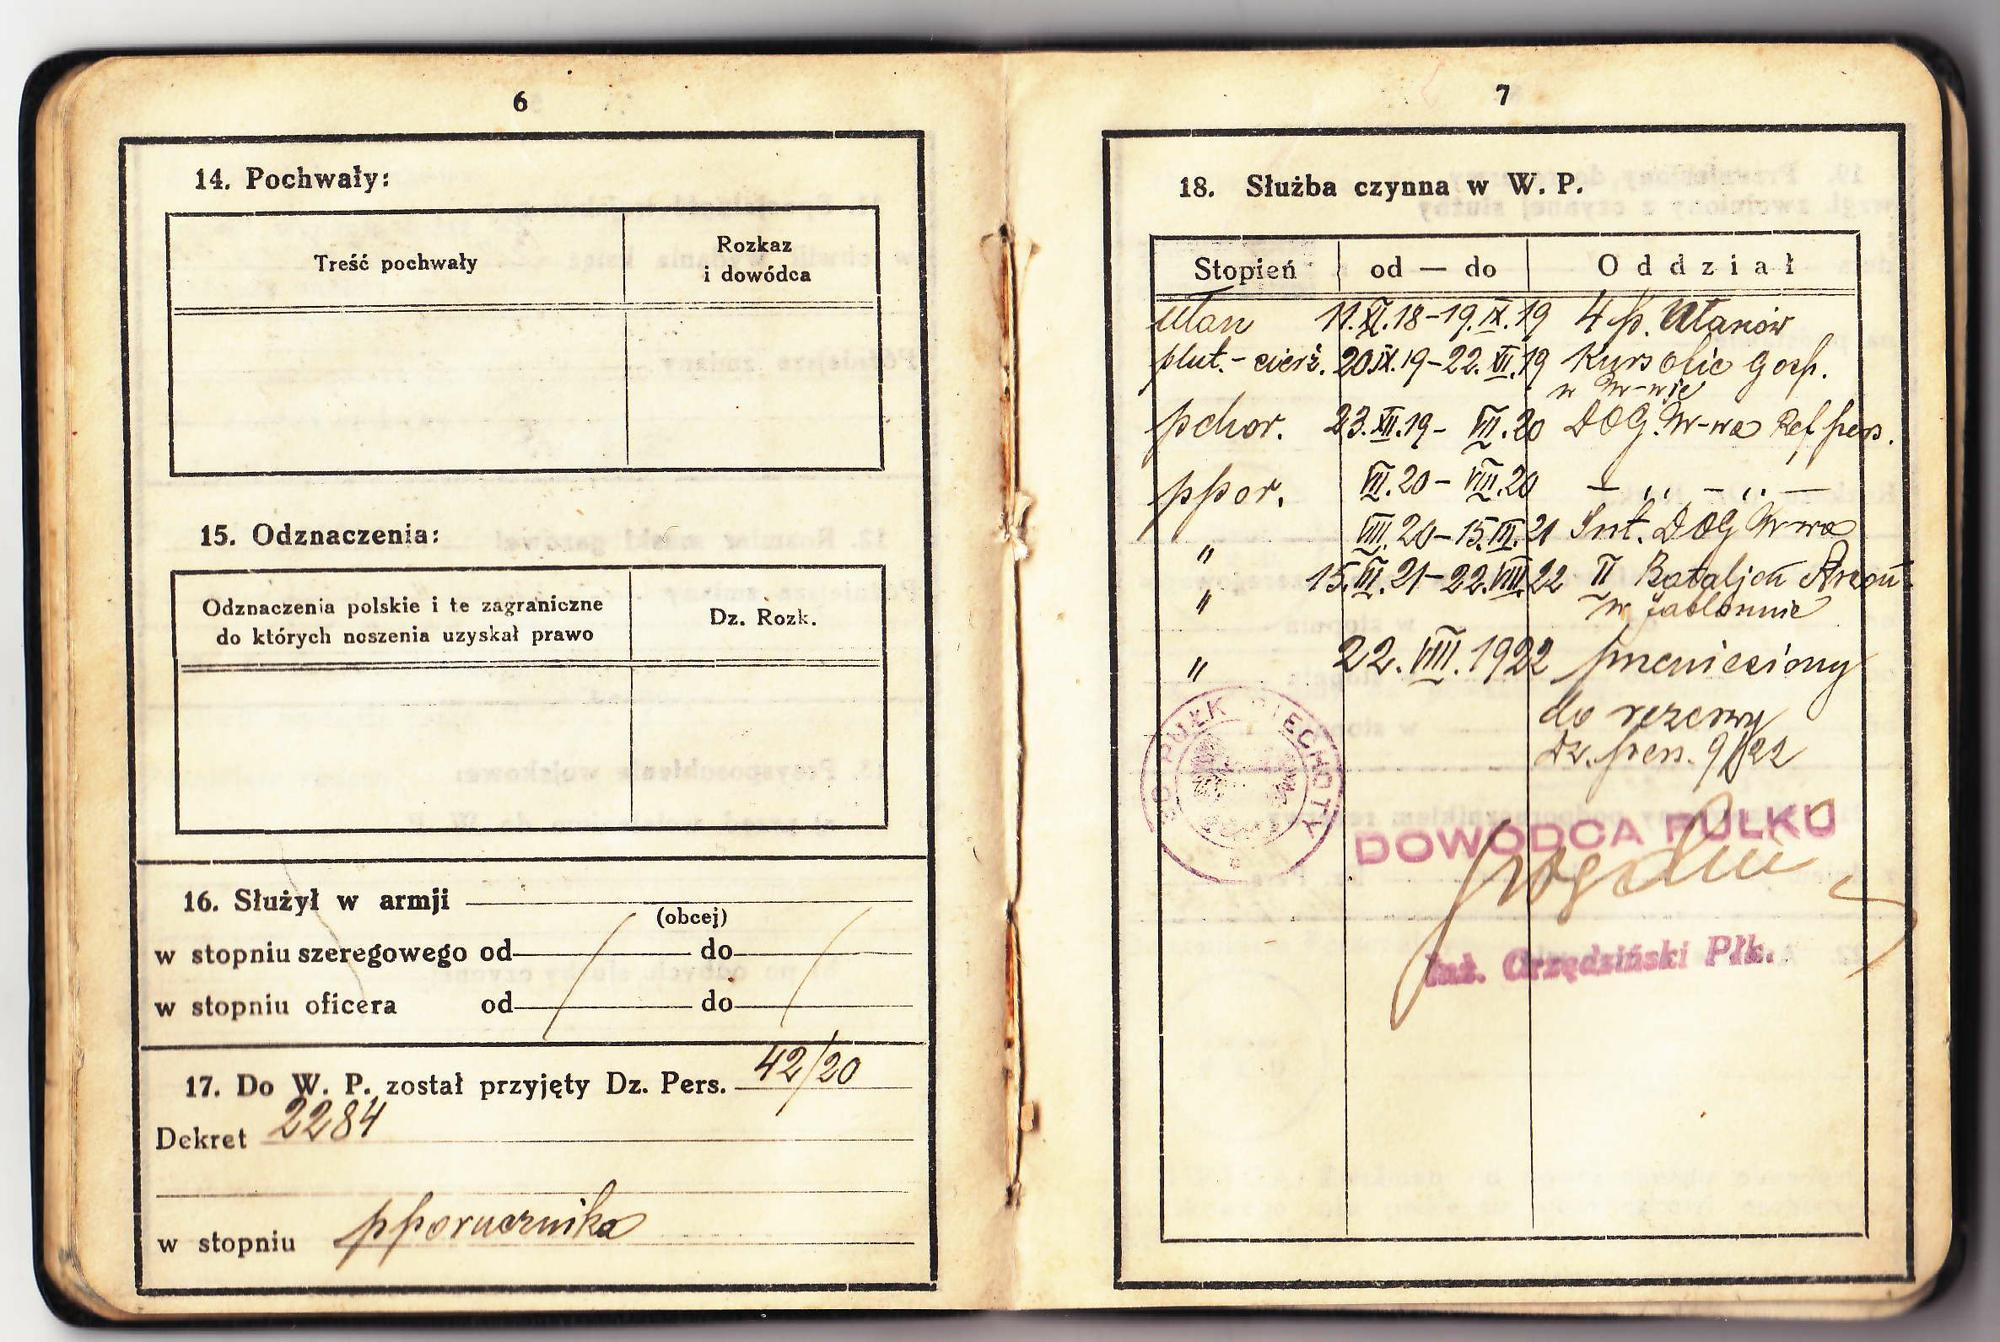 6
14. Pochwały:
Treść pochwały
Rozkaz
i dowódca
15. Odznaczenia:
Odznaczenia polskie i te zagraniczne
do których noszenia uzyskał prawo
Dz. Rozk.
16. Służył w armji
(obcej)
w stopniu szeregowego od do
w stopniu oficera od do
17. Do W. P. został przyjęty Dz. Pers. 42/20
Dekret 2284
w stopniu pporucznika
7
18. Służba czynna w W. P.
Stopień od — do Oddział
ułan 11.XI.18-19.IX.19 4 p. Ułanów
plut. 20.IX.19-22.XII.19 Kurs ofic Gosp.
w W-wie
pchor. 23.XII.19- VII.20 DOG. W-wa Ref pers.
ppor. VII.20-VIII.20 — „ — „ —
„ VIII.20-15.III.21 Int. DOG W-wa
„ 15.III.21-22.VIII.22 II Bataljon
w Jabłonnie
„ 22.VIII.1922 przeniesiony
do rezerwy
Dz. pers. 9/22
PUŁK PIECHOTY
DOWÓDCA PUŁKU
Inż. Płk.